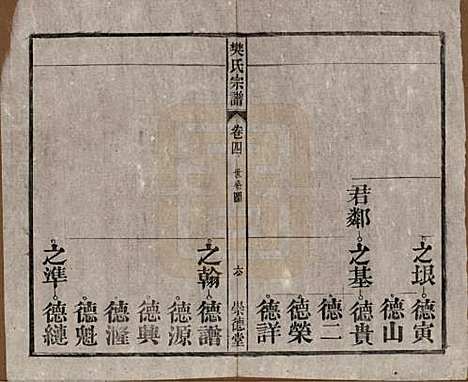 之垠 德寅
德山
君鄰 之基 德貴
德二
德榮
德詳
樊氏宗譜 卷四 世系圖 六 崇德堂
之翰 德譜
德源
德興
德漋
德魁
之準 德縺